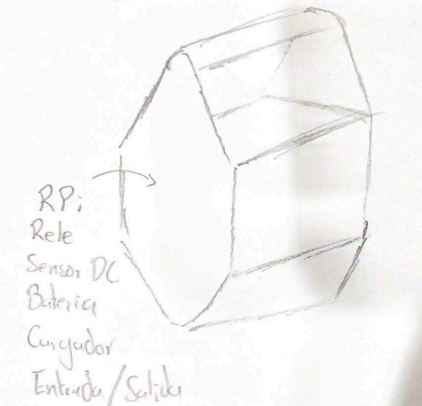 RPi
Rele
Sensor DC
Bateria
Cargador
Entrada/Salida